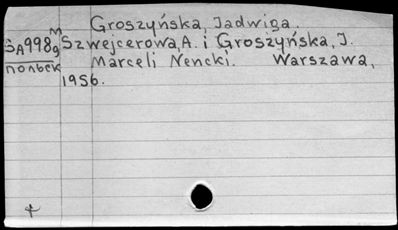 Groszyńska, Jadwiga.
M
SA998g Szwejcerowa, A. i Groszyńska, J.
полвек Marceli Nencki. Warszawa,
1956.